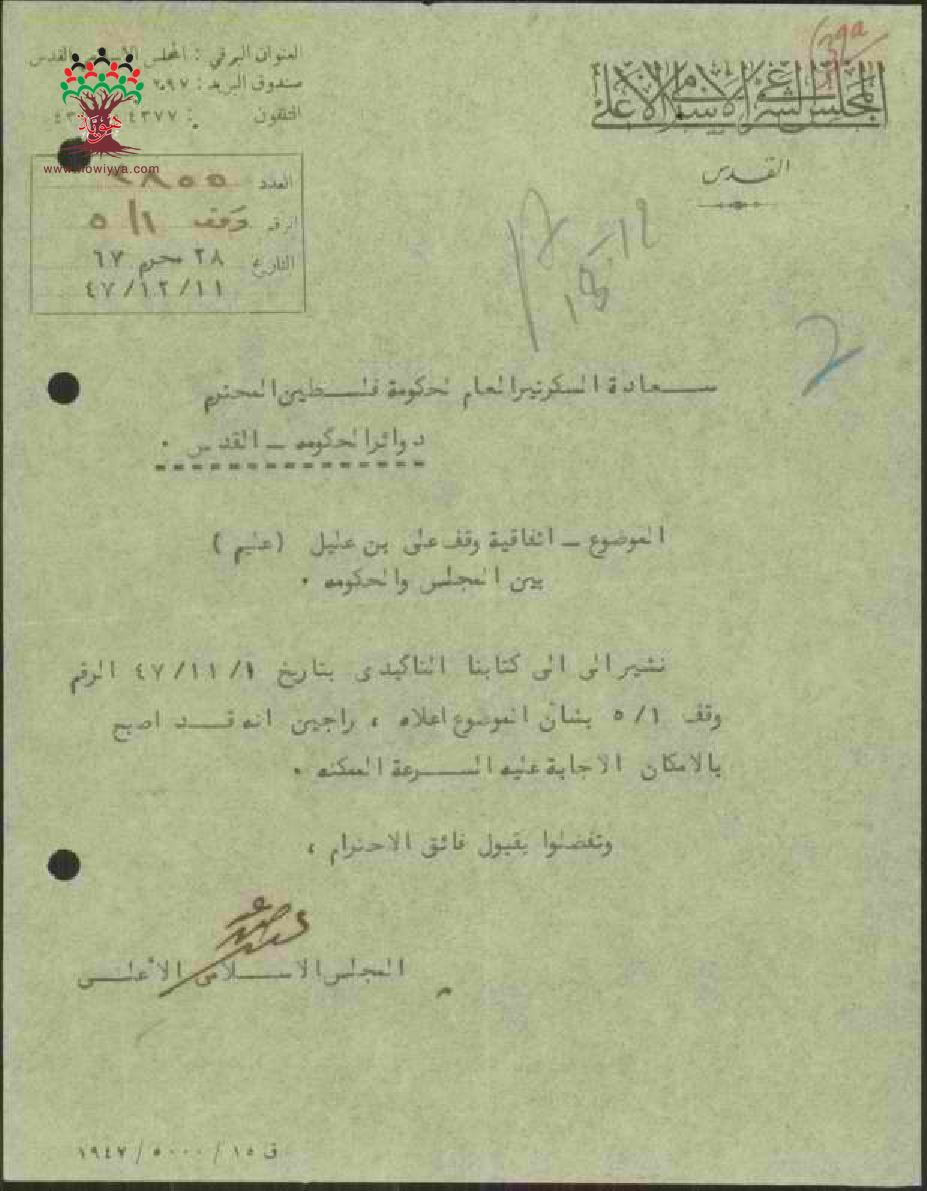 المجلس الشرعي الإسلامي الأعلى
القدس
39a
العنوان البرقي : المجلس الاسلامي القدس
صندوق البريد : ٦٩٧
التلفون : ٤٣٧٧
هوية
www.howiyya.com
العدد ٣٨٥٥
الرقم وقف ٥/١
التاريخ ٢٨ محرم ٦٧
٤٧/١٢/١١
١٥-١٢
2
سعادة السكرتير العام لحكومة فلسطين المحترم
دوائر الحكومه – القدس .
الموضوع – اتفاقية وقف علي بن عليل (عليم )
بين المجلس والحكومه .
نشير الى الى كتابنا التاكيدى بتاريخ ٤٧/١١/١ الرقم
وقف ٥/١ بشان الموضوع اعلاه ، راجين انه قد اصبح
بالامكان الاجابة عليه السرعة الممكنه .
وتفضلوا بقبول فائق الاحترام ،
المجلس الاسلامى الأعلى
ق ١٥ / ٥٠٠٠ / ١٩٤٧